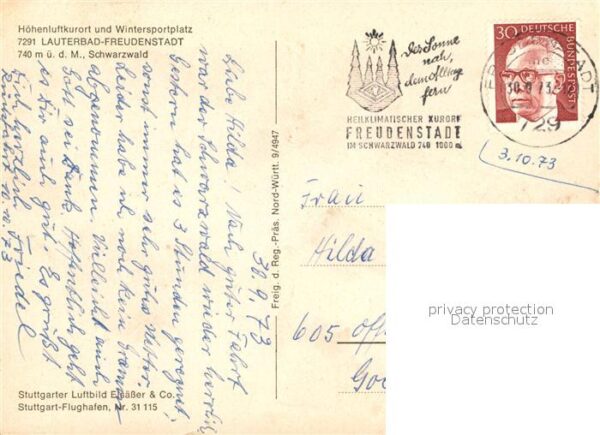 Höhenluftkurort und Wintersportplatz
7291 LAUTERBAD-FREUDENSTADT
740 m ü. d. M., Schwarzwald
30.9.73
Liebe Hilda! Nach guter Fahrt
war der Schwarzwald wieder herrlich
Gestern hat es 3 Stunden geregnet,
sonst immer sehr gutes Wetter.
Leider habe ich noch kein Gramm
abgenommen. Vielleicht auch
Gott sei Dank. Hoffentlich geht
es Dir auch gut. Es grüßt
Dich herzlich Friedel
Rückfahrt 10.10.73
Stuttgarter Luftbild Elsäßer & Co.
Stuttgart-Flughafen, Nr. 31 115
Freig. d. Reg.-Präs. Nord-Württ. 9/4947
Der Sonne
nah,
dem Alltag
fern
HEILKLIMATISCHER KURORT
FREUDENSTADT
IM SCHWARZWALD 740 1000 m
30 DEUTSCHE
BUNDESPOST
729
3.10.73
Frau
Hilda
605
privacy protection
Datenschutz